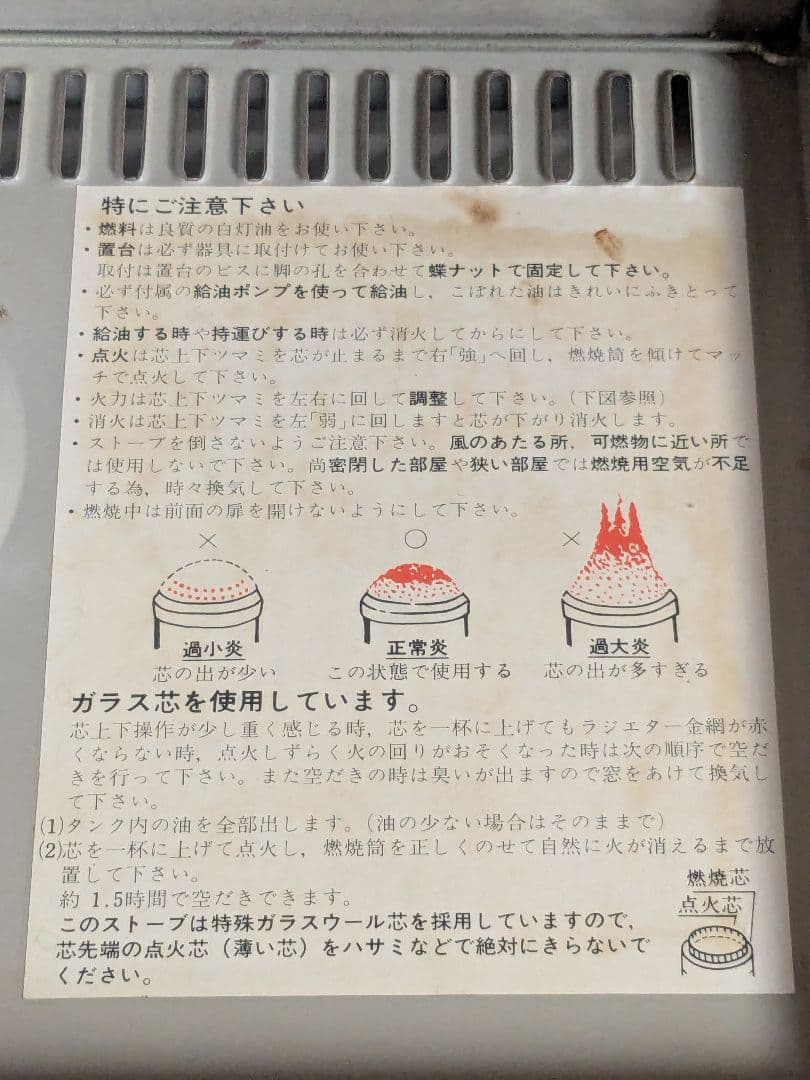 特にご注意下さい
・燃料は良質の白灯油をお使い下さい。
・置台は必ず器具に取付けてお使い下さい。
取付は置台のビスに脚の孔を合わせて蝶ナットで固定して下さい。
・必ず付属の給油ポンプを使って給油し、こぼれた油はきれいにふきとって
下さい。
・給油する時や持運びする時は必ず消火してからにして下さい。
・点火は芯上下ツマミを芯が止まるまで右「強」へ回し、燃焼筒を傾けてマッ
チで点火して下さい。
・火力は芯上下ツマミを左右に回して調整して下さい。(下図参照)
・消火は芯上下ツマミを左「弱」に回しますと芯が下がり消火します。
・ストーブを倒さないようご注意下さい。風のあたる所、可燃物に近い所で
は使用しないで下さい。尚密閉した部屋や狭い部屋では燃焼用空気が不足
する為、時々換気して下さい。
・燃焼中は前面の扉を開けないようにして下さい。
× ○ ×
過小炎 正常炎 過大炎
芯の出が少い この状態で使用する 芯の出が多すぎる
ガラス芯を使用しています。
芯上下操作が少し重く感じる時、芯を一杯に上げてもラジエター金網が赤
くならない時、点火しずらく火の回りがおそくなった時は次の順序で空だ
きを行って下さい。また空だきの時は臭いが出ますので窓をあけて換気し
て下さい。
(1)タンク内の油を全部出します。(油の少ない場合はそのままで)
(2)芯を一杯に上げて点火し、燃焼筒を正しくのせて自然に火が消えるまで放
置して下さい。
約 1.5時間で空だきできます。
このストーブは特殊ガラスウール芯を採用していますので、
芯先端の点火芯(薄い芯)をハサミなどで絶対にきらないで
ください。
燃焼芯
点火芯